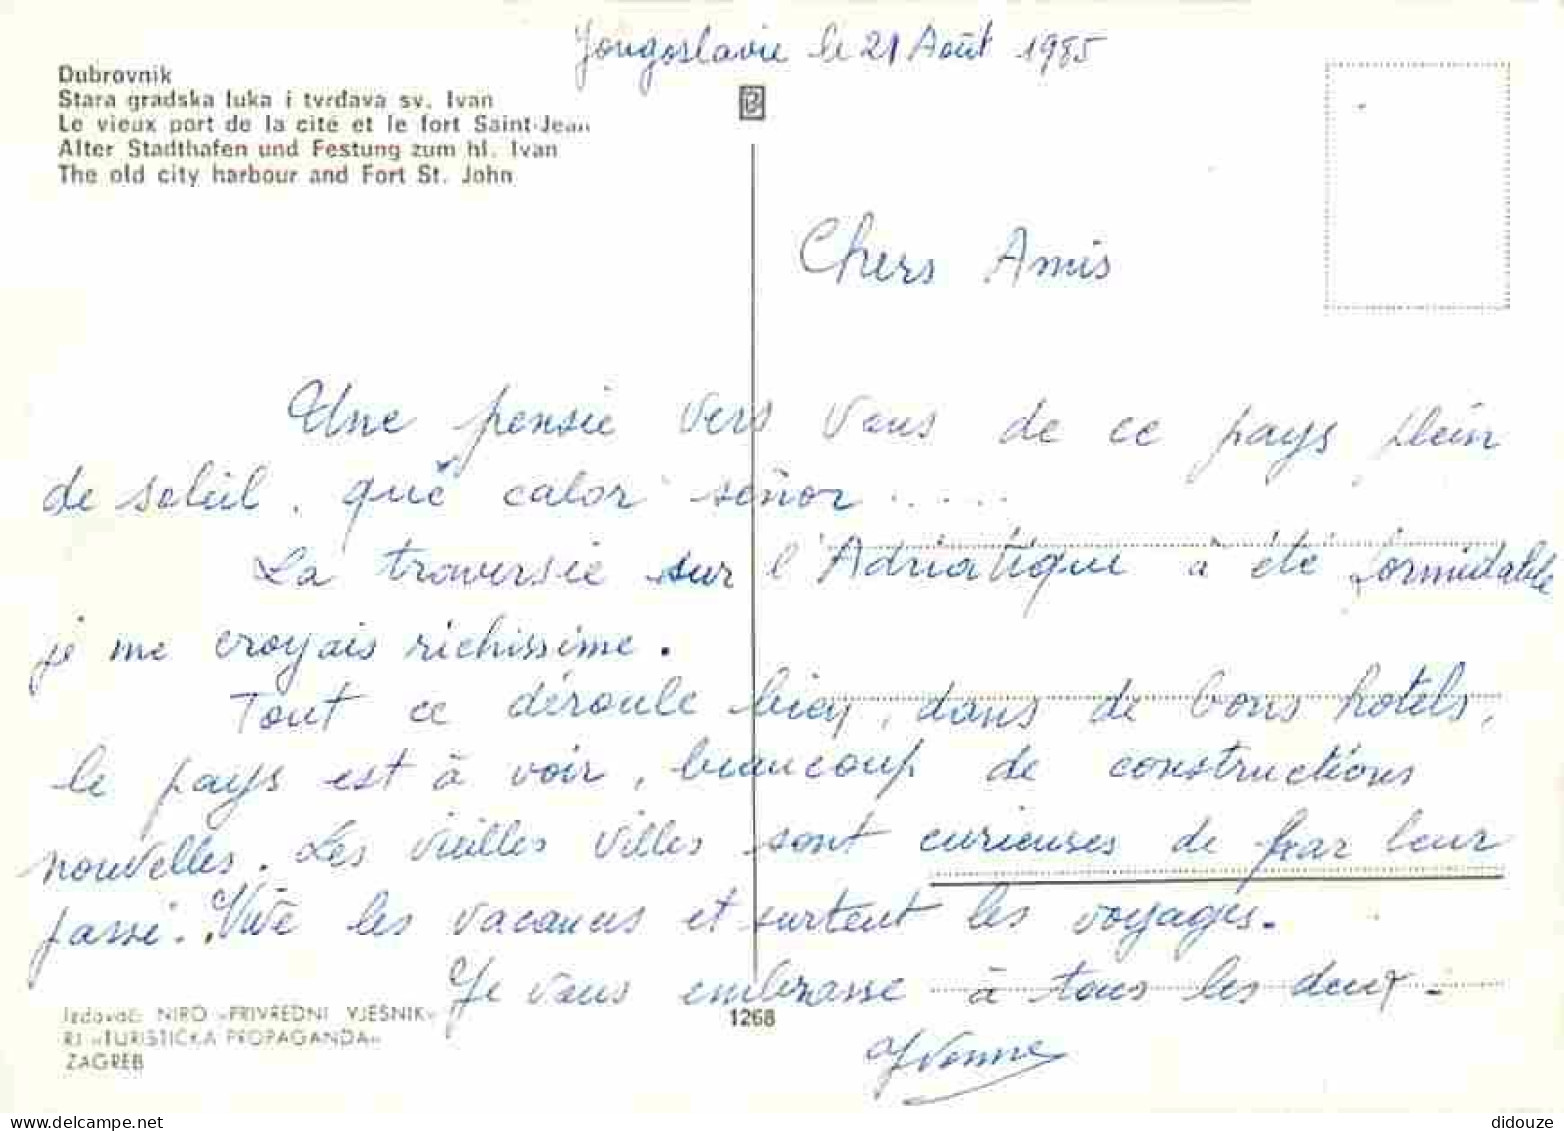 Yougoslavie le 21 Août 1985
Dubrovnik
Stara gradska luka i tvrđava sv. Ivan
Le vieux port de la cité et le fort Saint-Jean
Alter Stadthafen und Festung zum hl. Ivan
The old city harbour and Fort St. John
Chers Amis
Une pensée vers vous de ce pays plein
de soleil, qué calor señor .....
La traversée sur l'Adriatique a été formidable
je me croyais richissime.
Tout ce déroule bien, dans de bons hotels,
le pays est à voir, beaucoup de constructions
nouvelles. Les vieilles villes sont curieuses de par leur
passé. Vive les vacances et surtout les voyages.
Je vous embrasse à tous les deux.
Yvonne
Izdavač: NIRO »PRIVREDNI VJESNIK«
RJ »TURISTIČKA PROPAGANDA«
ZAGREB
1268
www.delcampe.net
didouze